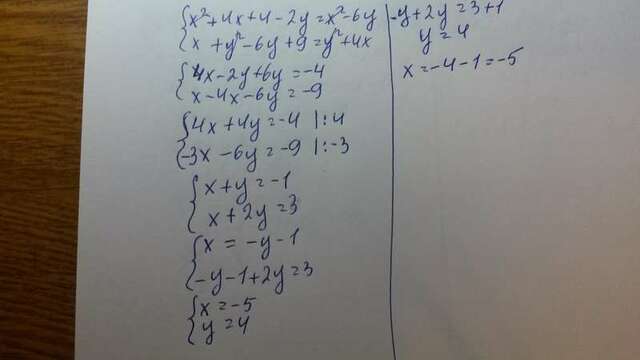 {x²+4x+4-2y=x²-6y
{x+y²-6y+9=y²+4x
{4x-2y+6y=-4
{x-4x-6y=-9
{4x+4y=-4 |:4
{-3x-6y=-9 |:-3
{x+y=-1
{x+2y=3
{x=-y-1
{-y-1+2y=3
{x=-5
{y=4
-y+2y=3+1
y=4
x=-4-1=-5